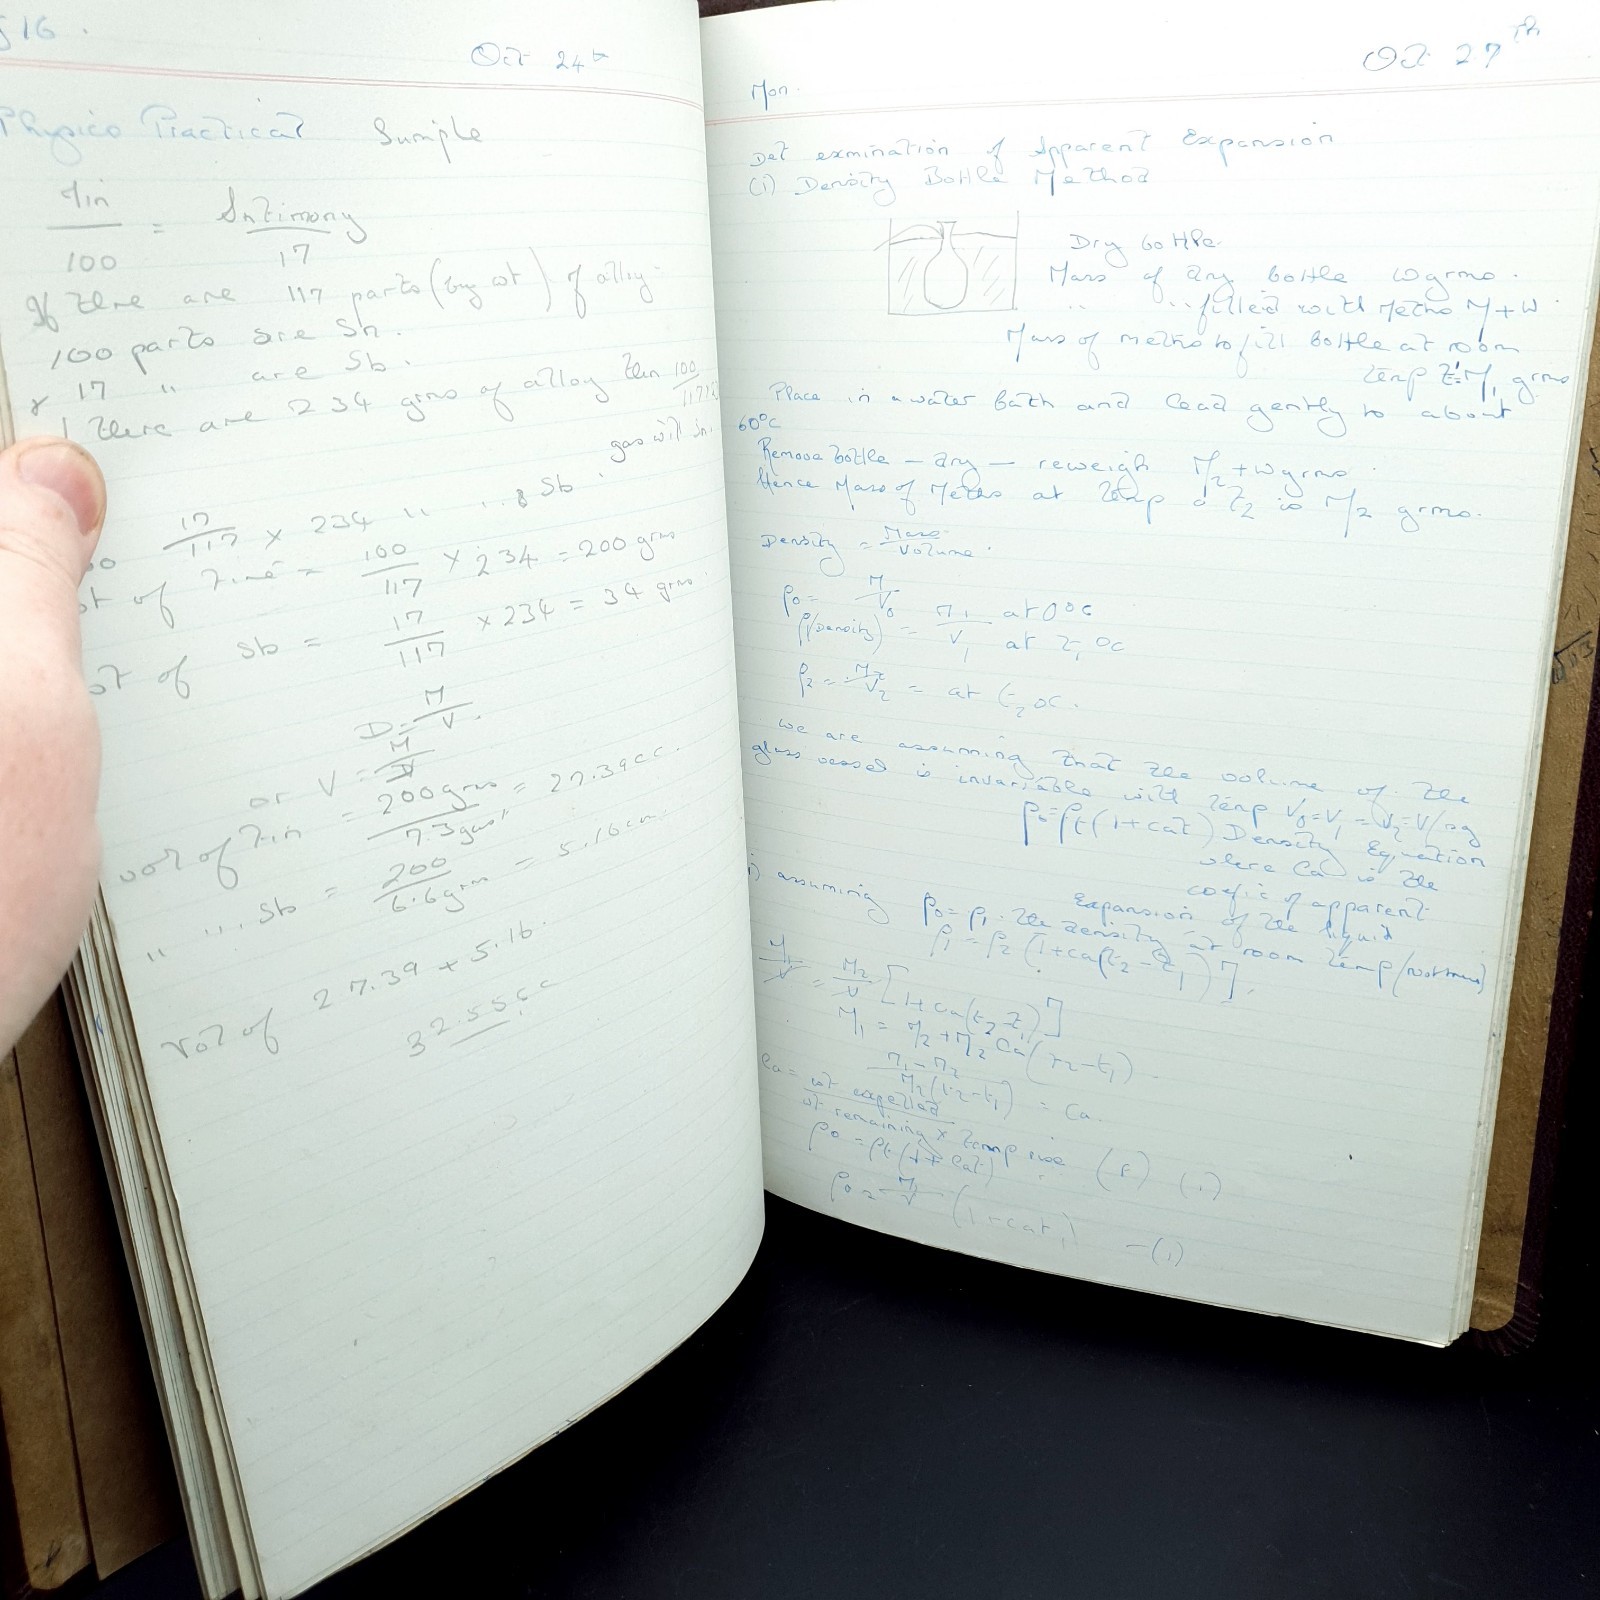 g 16.
Oct 24th
Physics Practical Sample
Tin/100 = Antimony/17
If there are 117 parts (by wt) of alloy
100 parts are Sn.
& 17 " are Sb.
If there are 234 grms of alloy then 100/117
gas will
17/117 x 234 " " " Sb.
wt of Tin = 100/117 x 234 = 200 grms
wt of Sb = 17/117 x 234 = 34 grms.
D = M/V.
or V = M/D
vol of Tin = 200 grms/7.3 = 27.39 cc.
" " Sb = 200/6.6 grm = 5.16 cm.
Vol of 27.39 + 5.16.
32.55 cc
Mon.
Oct 27th
Det exmination of Apparent Expansion
(i) Density Bottle Method
Dry bottle
Mass of dry bottle W grms.
" " filled with Meths M+W.
Mass of meths to fill bottle at room
temp t = M1 grms
Place in a water bath and lead gently to about
60°C
Remove bottle - dry - reweigh M2 + W grms.
Hence Mass of Meths at temp t2 is M2 grms.
Density = Mass/Volume.
ρ0 = M/V0
(ρ/Density) = M1/V1 at 0°C at t1 °C
ρ2 = M2/V2 = at t2 °C.
We are assuming that the volume of the
glass vessel is invariable with temp V0 = V1 = V2 = V/
ρ0 = ρt (1 + cat) Density Equation
where Ca is the
coefic of apparent
Expansion of the liquid
i) assuming ρ0 = ρ1. the density at room temp
ρ1 = ρ2 [1 + ca(t2 - t1)].
M1/V = M2/V [1 + Ca(t2 - t1)]
M1 = M2 + M2 Ca (t2 - t1).
M1 - M2/M2 (t2 - t1) = Ca.
Ca = wt expelled/wt remaining x temp rise
ρ0 = ρt (1 + Cat)
ρ0 = M1/V (1 + cat1) - (1)